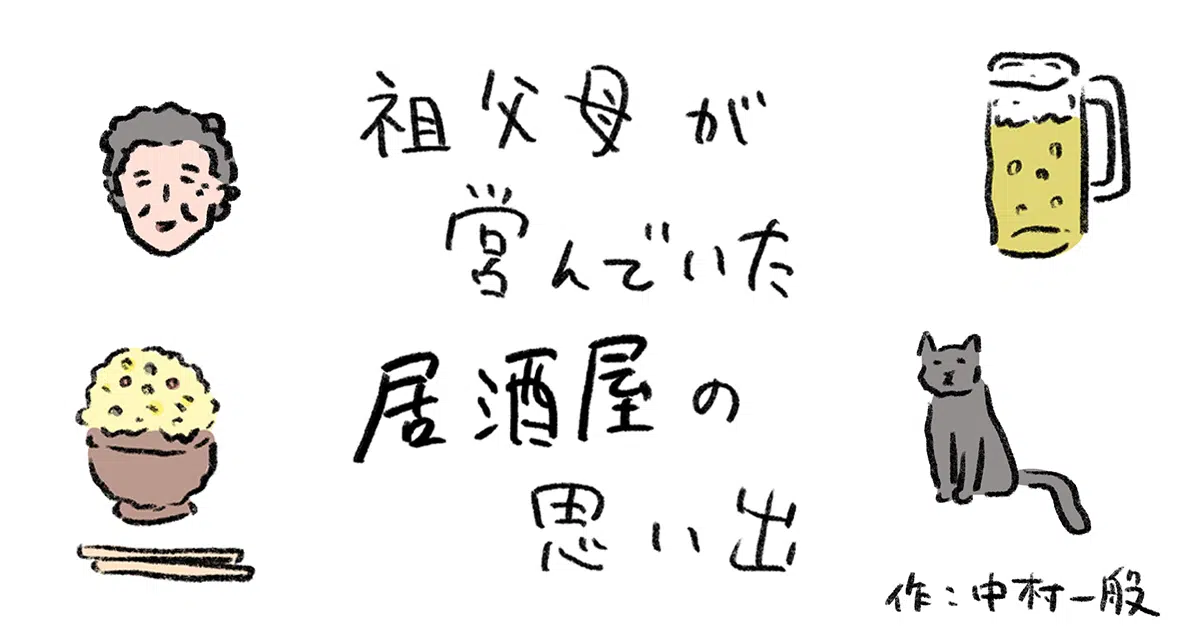 祖父母が
営んでいた
居酒屋の
思い出
作：中村一般